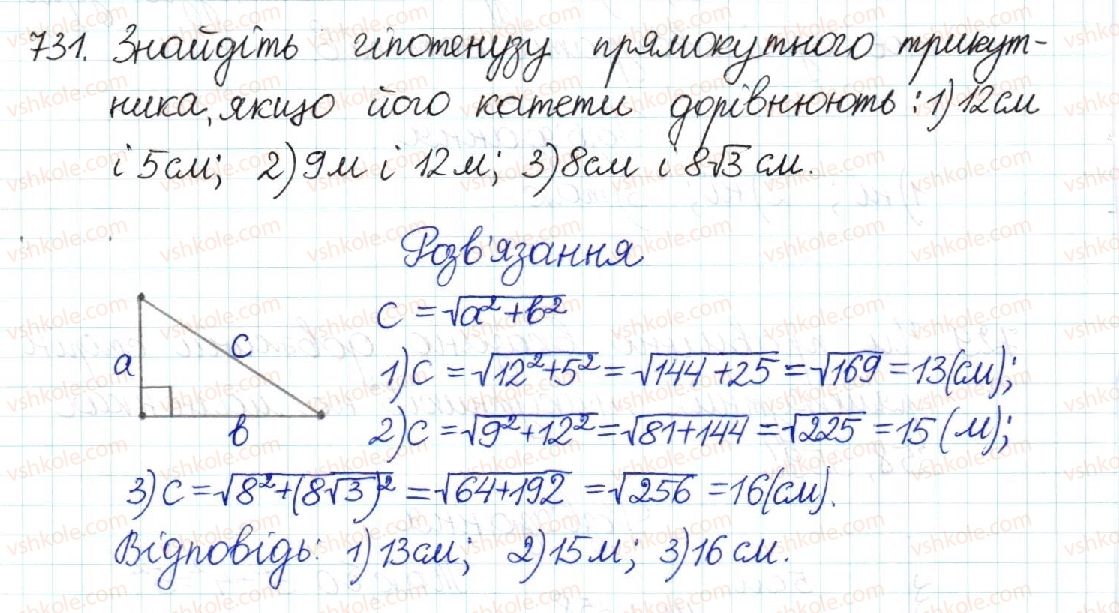 731. Знайдіть гіпотенузу прямокутного трикут-
ника, якщо його катети дорівнюють: 1) 12 см
і 5 см; 2) 9 м і 12 м; 3) 8 см і 8√3 см.
Розв'язання
c = √(a² + b²)
a
c
b
1) c = √(12² + 5²) = √(144 + 25) = √169 = 13 (см);
2) c = √(9² + 12²) = √(81 + 144) = √225 = 15 (м);
3) c = √(8² + (8√3)²) = √(64 + 192) = √256 = 16 (см).
Відповідь: 1) 13 см; 2) 15 м; 3) 16 см.